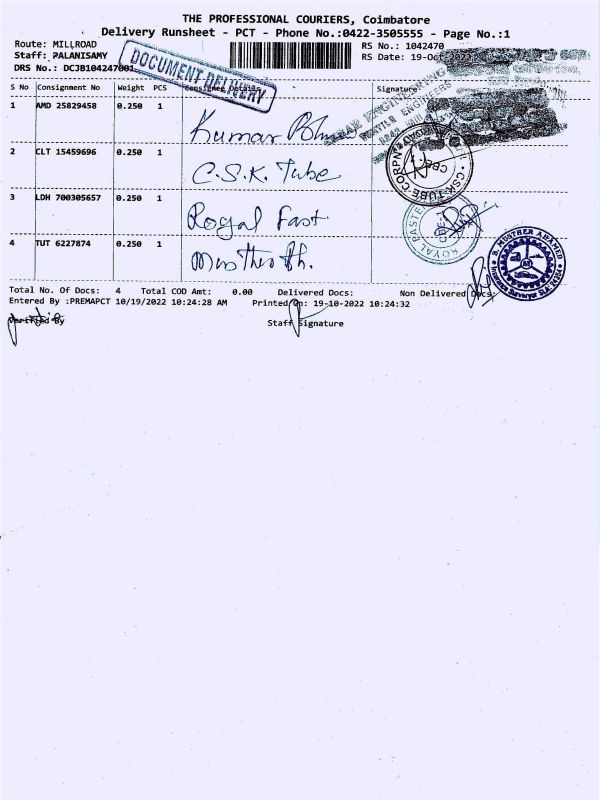 THE PROFESSIONAL COURIERS, Coimbatore
Delivery Runsheet - PCT - Phone No.:0422-3505555 - Page No.:1
Route: MILLROAD
RS No.: 1042470
Staff: PALANISAMY
RS Date: 19-Oct-2022
DRS No.: DCJB104247001
DOCUMENT DELIVERY
S No Consignment No Weight PCS Consignee Details Signature
1 AMD 25829458 0.250 1 Kumar
2 CLT 15459696 0.250 1 C.S.K. Tube
3 LDH 700305657 0.250 1 Royal Fast
4 TUT 6227874 0.250 1
CSK TUBE CORPN
CBE
ROYAL
B. MUSTHER AHAMED
Insurance Surveyor
Total No. Of Docs: 4 Total COD Amt: 0.00 Delivered Docs: Non Delivered Docs:
Entered By :PREMAPCT 10/19/2022 10:24:28 AM Printed On: 19-10-2022 10:24:32
Verified By Staff Signature